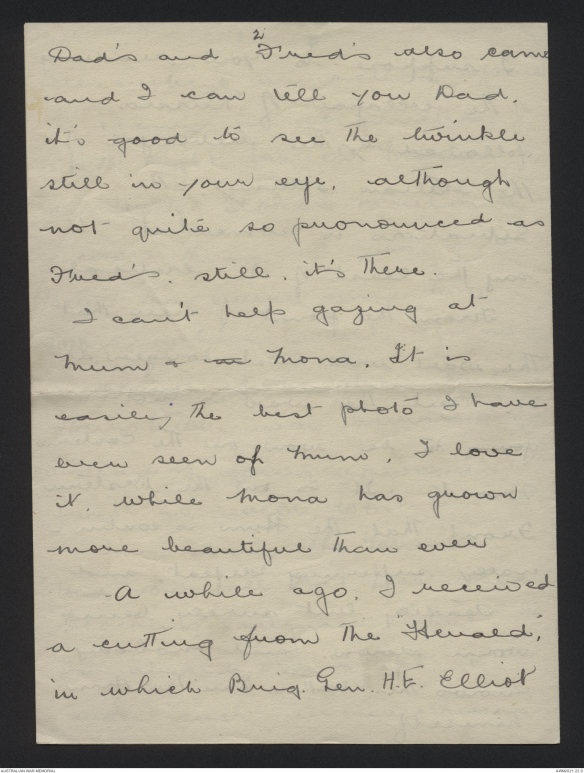 2
Dad's and Fred's also came
and I can tell you Dad.
it's good to see the twinkle
still in your eye, although
not quite so pronounced as
Fred's. still. it's there.
I can't help gazing at
Mum & Mona. It is
easily the best photo I have
ever seen of Mum. I love
it. while Mona has grown
more beautiful than ever
A while ago, I received
a cutting from the "Herald,"
in which Brig. Gen. H.E. Elliot
AUSTRALIAN WAR MEMORIAL